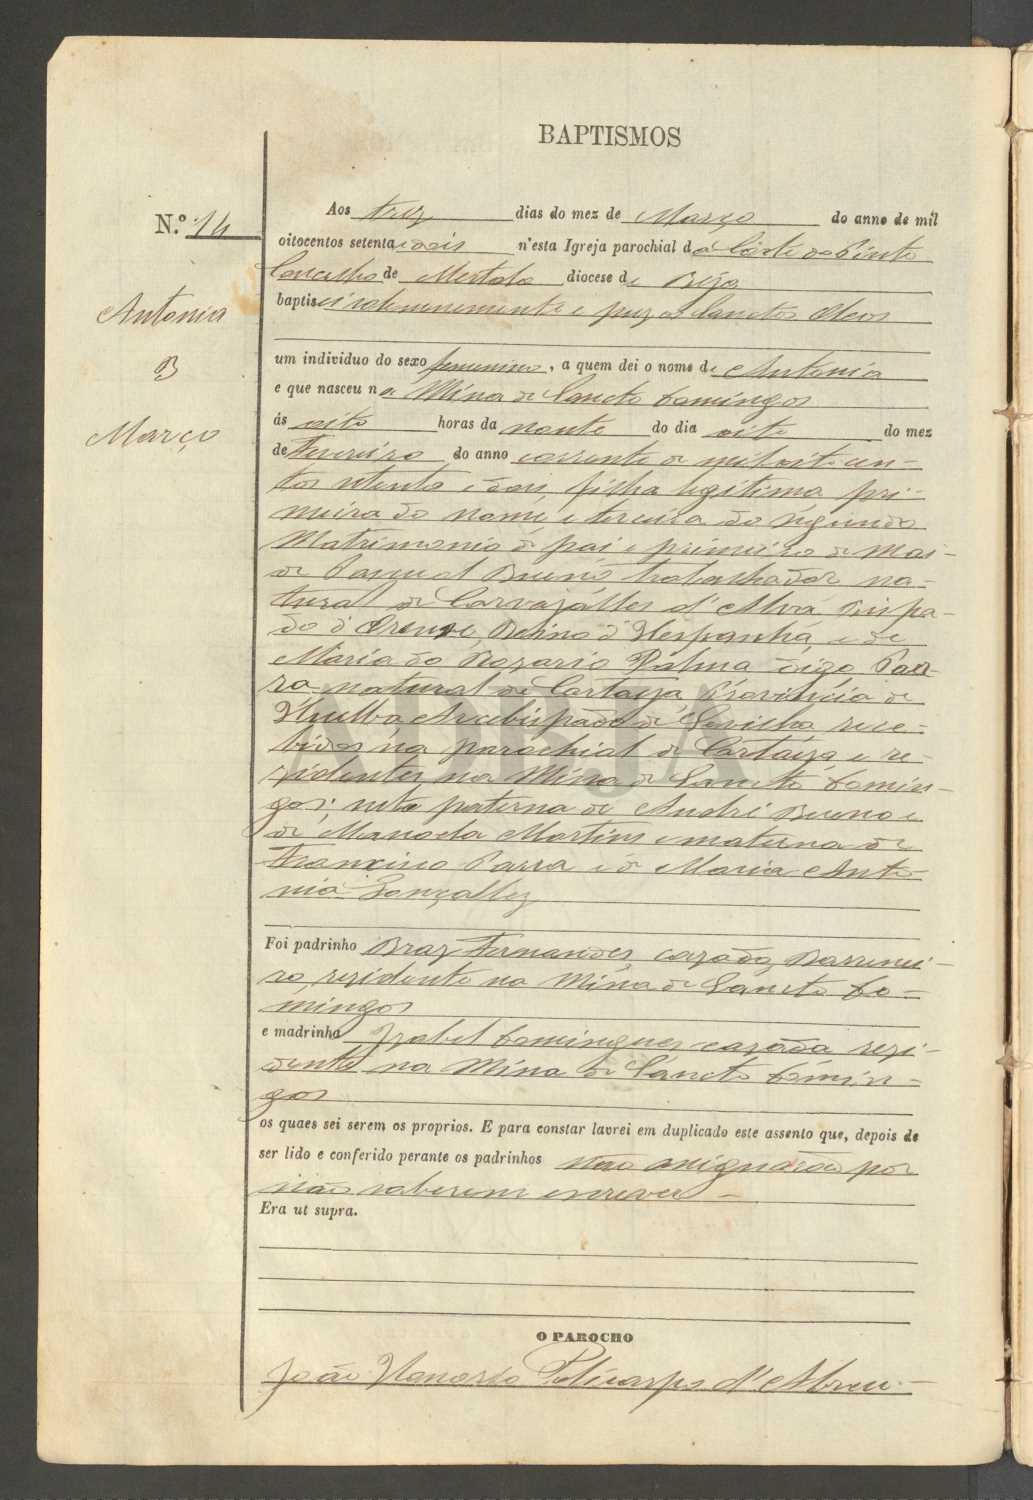 BAPTISMOS
N.º 14
Antonia
B
Março
Aos trez dias do mez de Março do anno de mil
oitocentos setenta e dois n'esta Igreja parochial da Côrte do Pinto
Concelho de Mertola diocese de Beja
baptisei solemnemente e puz os Sanctos Oleos
um individuo do sexo femenino, a quem dei o nome de Antonia
e que nasceu na Mina de Sancto Domingos
ás oito horas da noute do dia oito do mez
de Fevereiro do anno corrente de mil oitocen-
tos setenta e dois, filha legitima pri-
meira do nome e terceira do segundo
Matrimonio de pai e primeiro de Mai-
de Pascual Bueno trabalhador na-
tural de Carvajálles d'Alva, Bispa-
do d'Orense, Reino d'Hespanha, e de
Maria do Rozario Palma digo Par-
ra natural de Cartaya Provincia de
Huelba Arcebispado de Sevilha rece-
bidos na parochial de Cartaya e re-
zidentes na Mina de Sancto Domin-
gos; neta paterna de André Bueno e
de Manoela Martins e materna de
Francisco Parra e de Maria Anto-
nia Gonçallez
Foi padrinho Braz Fernandes, cazado, Barrenei-
ro, rezidente na Mina de Sancto Do-
mingos
e madrinha Izabel Domingues cazada rezi-
dente na Mina de Sancto Domin-
gos
os quaes sei serem os proprios. E para constar lavrei em duplicado este assento que, depois de
ser lido e conferido perante os padrinhos não asignarão por
não saberem escrever -
Era ut supra.
O PAROCHO
João Policarpo d'Abreu